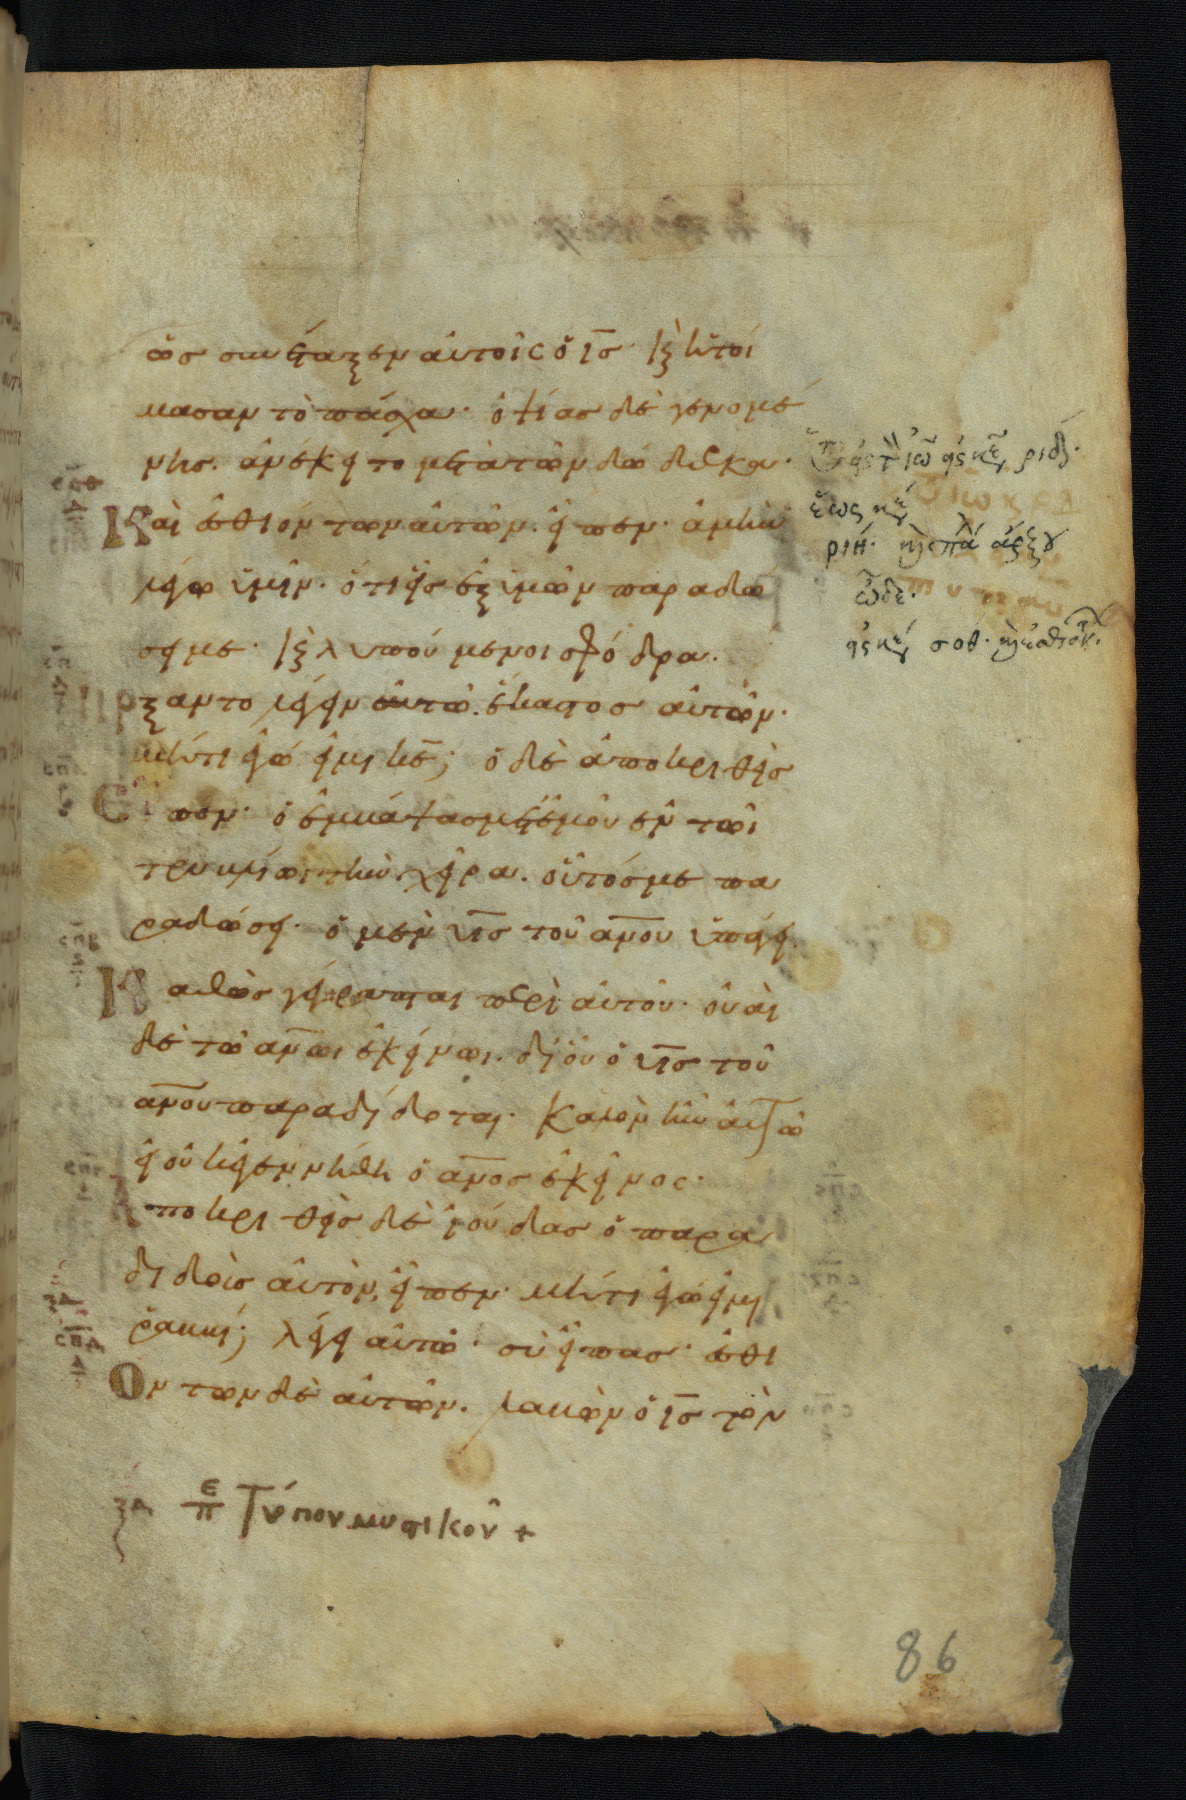 ὡς συνέταξεν αὐτοῖς ὁ ις· καὶ ἡτοί
μασαν τὸ πάσχα· ὀψίας δὲ γενομέ
νης. ἀνέκειτο μετὰ τῶν δώδεκα·
Καὶ ἐσθιόντων αὐτῶν. εἶπεν· ἀμὴν
λέγω ὑμῖν· ὅτι εἷς ἐξ ὑμῶν παραδώ
σει με· καὶ λυπούμενοι σφόδρα.
ἤρξαντο λέγειν αὐτῷ. ἕκαστος αὐτῶν·
μήτι ἐγώ εἰμι κε; ὁ δὲ ἀποκριθεὶς
Εἶπεν· ὁ ἐμβάψας μετ' ἐμοῦ ἐν τῶι
τρυβλίωι τὴν χεῖρα. οὗτός με πα
ραδώσει· ὁ μὲν υις τοῦ ανου ὑπάγει.
Καθὼς γέγραπται περὶ αὐτοῦ· οὐαὶ
δὲ τῶ ανωι ἐκείνωι. δι' οὗ ὁ υις τοῦ
ανου παραδίδοται· καλὸν ἦν αὐτῶ
εἰ οὐκ ἐγεννήθη ὁ ανος ἐκεῖνος·
Ἀποκριθεὶς δὲ ἰούδας ὁ παρα
διδοὺς αὐτὸν, εἶπεν· μήτι ἐγώ εἰμι
ῥαββί; λέγει αὐτῶ· σὺ εἶπας· ἐσθι
Όντων δὲ αὐτῶν. λαβὼν ὁ ις τὸν
ἕως
ριη·
ὧδε·
σοθ·
σπδ
ξδ επ Τύπου μυστικοῦ +
86